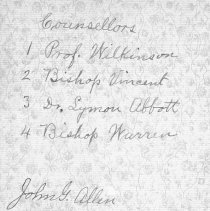 Counsellors
1 Prof. Wilkinson
2 Bishop Vincent
3 Dr. Lymon Abbott
4 Bishop Warren
John G. Allen